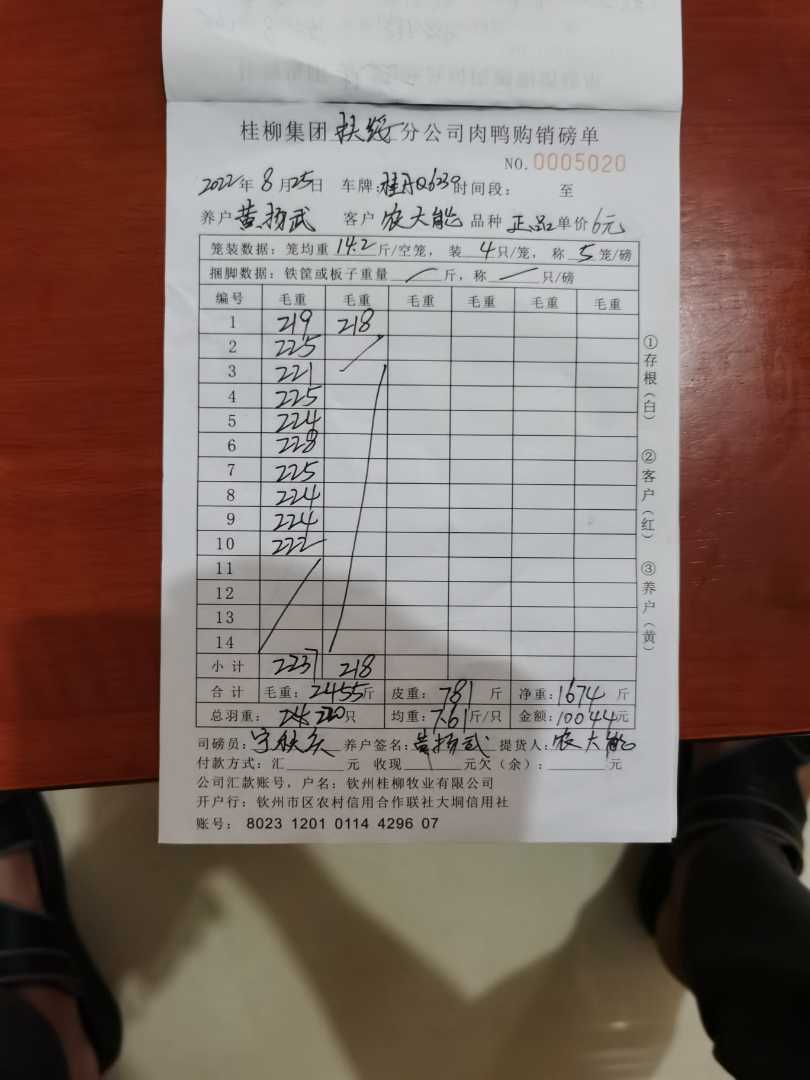 桂柳集团扶绥分公司肉鸭购销磅单
NO.0005020
2022年8月25日 车牌:桂AQ6239时间段: 至
养户黄扬武 客户农大能 品种正品单价6元
笼装数据:笼均重14.2斤/空笼, 装4只/笼, 称5笼/磅
捆脚数据:铁筐或板子重量/斤,称/只/磅
编号 毛重 毛重 毛重 毛重 毛重 毛重
1 219 218
2 225
3 221
4 225
5 224
6 228
7 225
8 224
9 224
10 222
11
12
13
14
小计 2237 218
合计 毛重:2455斤 皮重:781斤 净重:1674斤
总羽重: 220只 均重:7.61斤/只 金额:10044元
司磅员: 养户签名:黄扬武 提货人:农大能
付款方式:汇 元 收现 元欠(余): 元
公司汇款账号,户名:钦州桂柳牧业有限公司
开户行:钦州市区农村信用合作联社大垌信用社
账号: 8023 1201 0114 4296 07
①存根(白)
②客户(红)
③养户(黄)